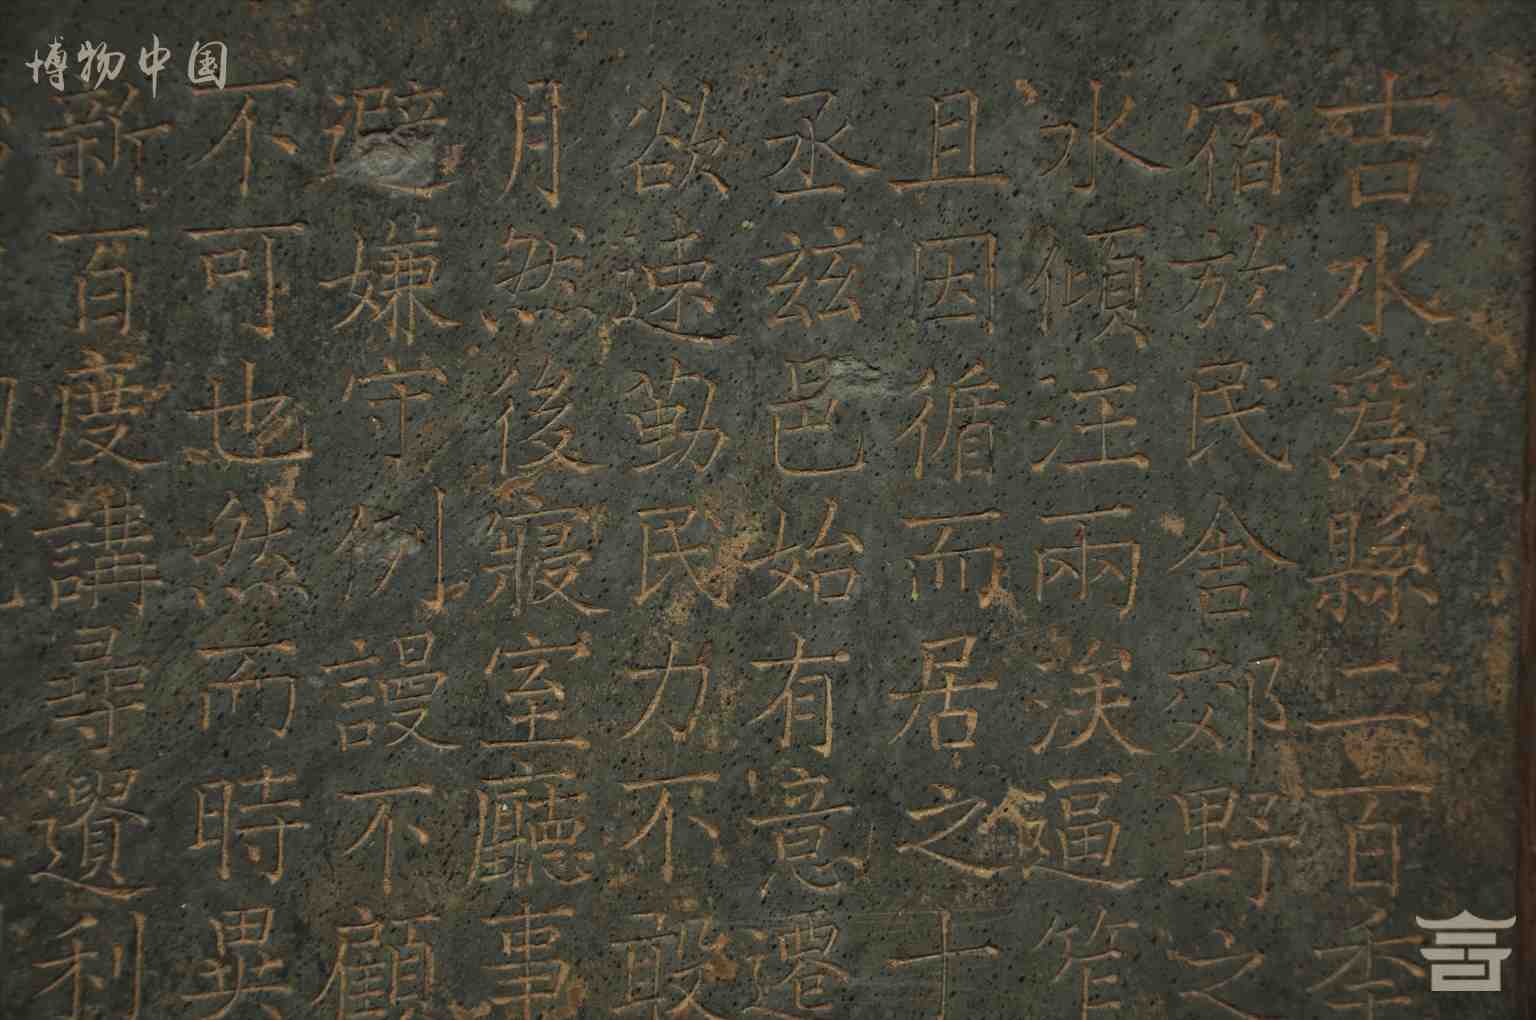 博物中国
吉水為縣二百年
宿於民舍郊野之
水傾注兩涘逼笮
且因循而居之十
丞茲邑始有意遷
欲速勤民力不敢
月然後寢室廳事
避嫌守例謾不顧
不可也然而時異
新百度講尋遺利